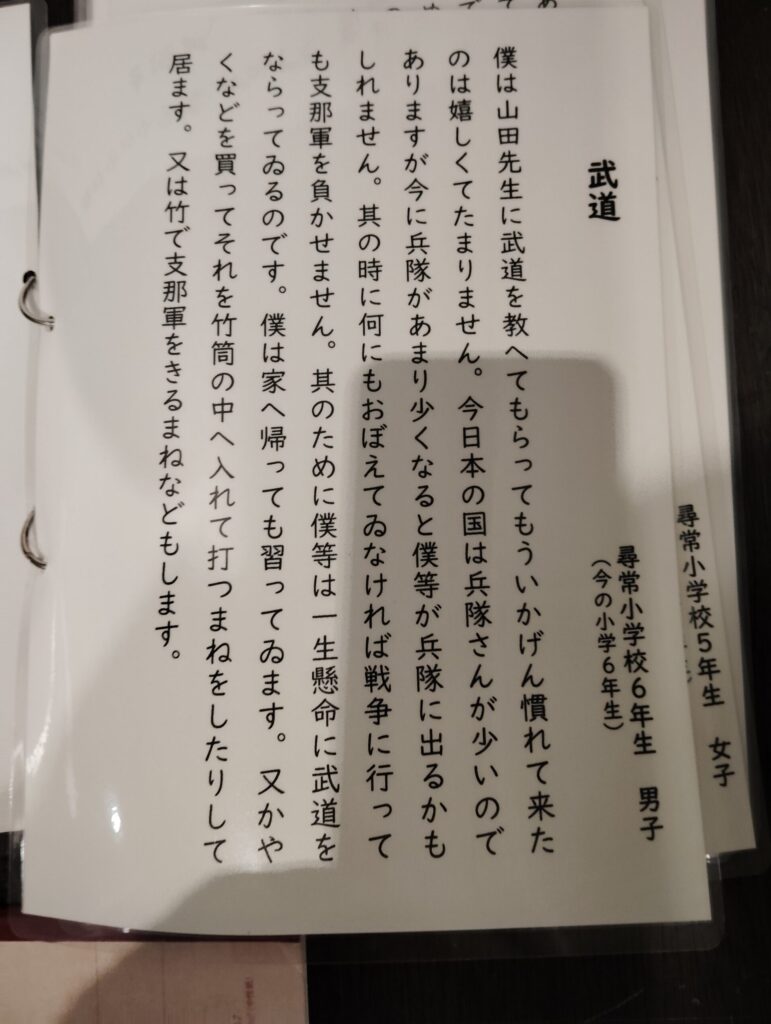 武道
尋常小学校6年生 男子
(今の小学6年生)
僕は山田先生に武道を教へてもらってもういかげん慣れて来た
のは嬉しくてたまりません。今日本の国は兵隊さんが少いので
ありますが今に兵隊があまり少くなると僕等が兵隊に出るかも
しれません。其の時に何にもおぼえてゐなければ戦争に行って
も支那軍を負かせません。其のために僕等は一生懸命に武道を
ならってゐるのです。僕は家へ帰っても習ってゐます。又かや
くなどを買ってそれを竹筒の中へ入れて打つまねをしたりして
居ます。又は竹で支那軍をきるまねなどもします。
尋常小学校5年生 女子